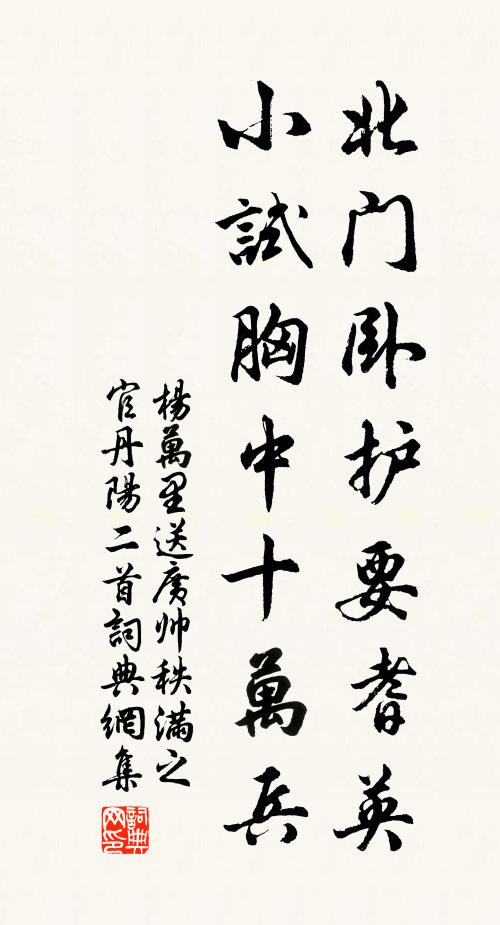 北门卧护要耆英
小試胸中十萬兵
楊萬里送廣帅秩滿之
官丹陽二首詞典網集
詞典网印